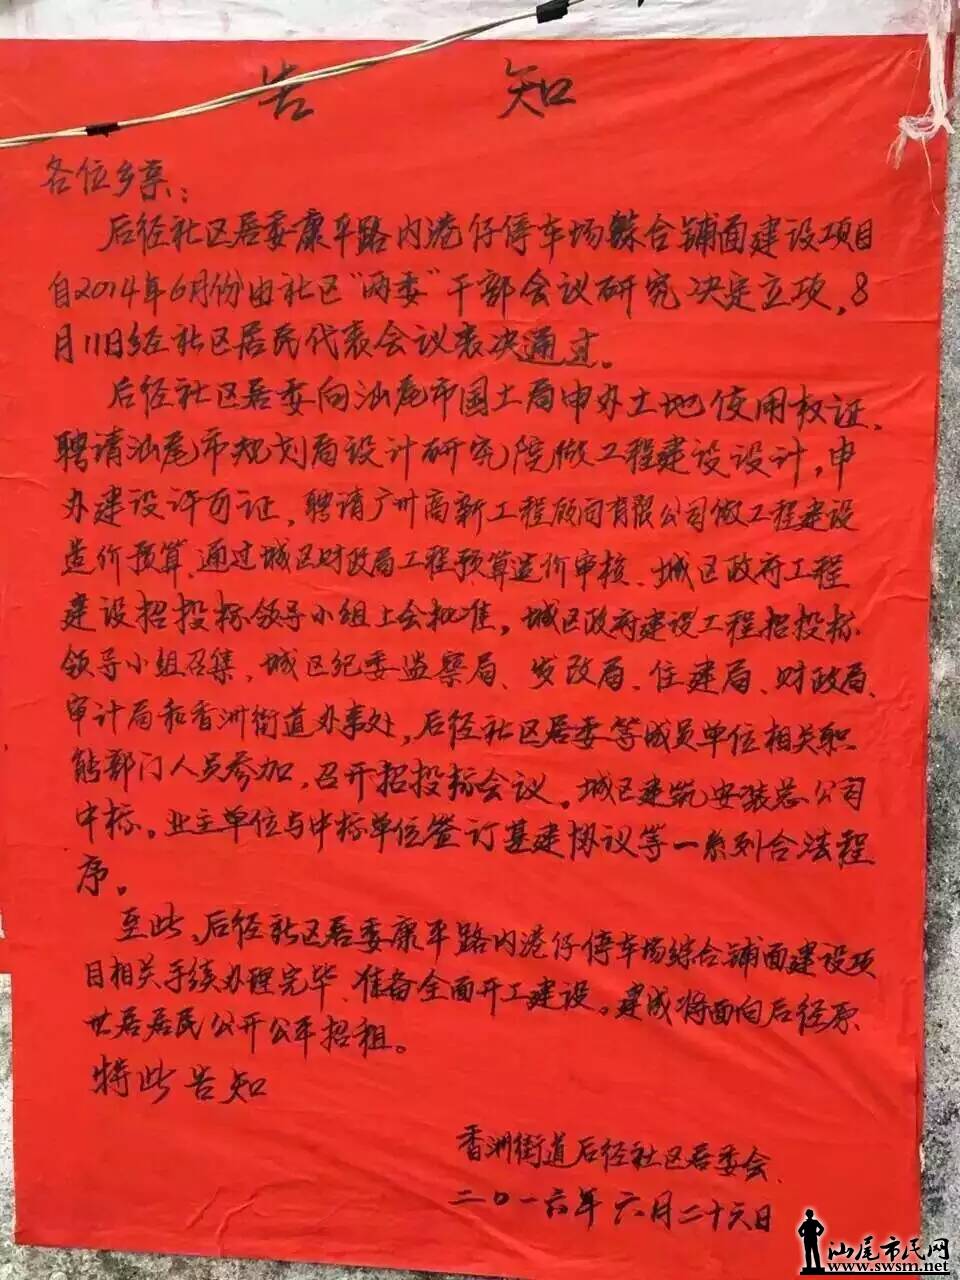 告知
各位乡亲：
后径社区居委康平路内港仔停车场综合铺面建设项目
自2014年6月份由社区“两委”干部会议研究决定立项，8
月11日经社区居民代表会议表决通过。
后径社区居委向汕尾市国土局申办土地使用权证、
聘请汕尾市规划局设计研究院做工程建设设计，申
办建设许可证、聘请广州高新工程顾问有限公司做工程建设
造价预算、通过城区财政局工程预算造价审核、城区政府工程
建设招投标领导小组上会批准，城区政府建设工程招投标
领导小组召集、城区纪委监察局、发改局、住建局、财政局、
审计局和香洲街道办事处，后径社区居委等成员单位相关职
能部门人员参加，召开招投标会议。城区建筑安装总公司
中标。业主单位与中标单位签订基建协议等一系列合法程
序。
至此，后径社区居委康平路内港仔停车场综合铺面建设项
目相关手续办理完毕、准备全面开工建设。建成将面向后径原
世居居民公开公平招租。
特此告知
香洲街道后径社区居委会
二〇一六年六月二十六日
汕尾市民网
www.swsm.net